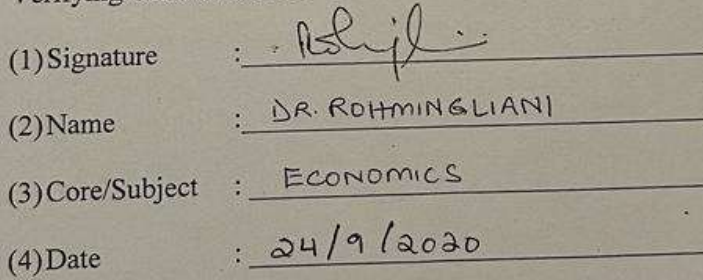 (1) Signature :
(2) Name : DR. ROHMINGLIANI
(3) Core/Subject : ECONOMICS
(4) Date : 24/9/2020